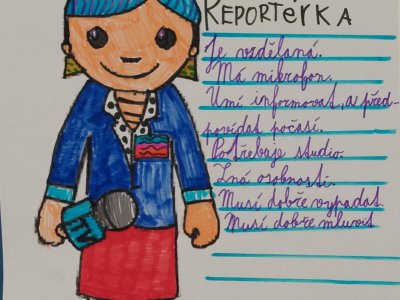 REPORTÉRKA
Je vzdělaná.
Má mikrofon.
Umí informovat, a před-
povídat počasí.
Potřebuje studio.
Zná osobnosti.
Musí dobře vypadat.
Musí dobře mluvit